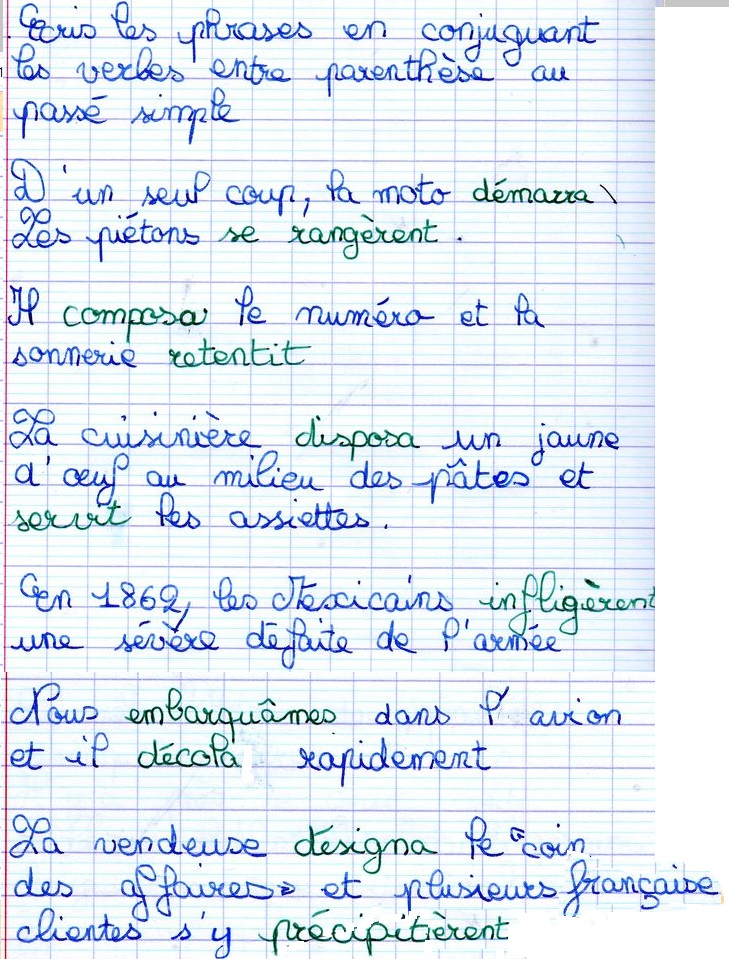 Ecris les phrases en conjuguant
les verbes entre parenthèse au
passé simple
D'un seul coup, la moto démarra
Les piétons se rangèrent.
Il composa le numéro et la
sonnerie retentit
La cuisinière disposa un jaune
d'œuf au milieu des pâtes et
servit les assiettes.
En 1862, les Mexicains infligèrent
une sévère défaite de l'armée
Nous embarquâmes dans l'avion
et il décola rapidement
La vendeuse désigna le "coin
des affaires» et plusieurs française
clientes s'y précipitièrent